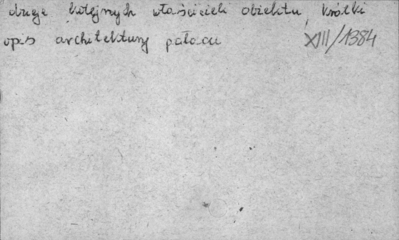 dzieje kolejnych właścicieli obiektu, krótki
opis architektury pałacu XIII/1384